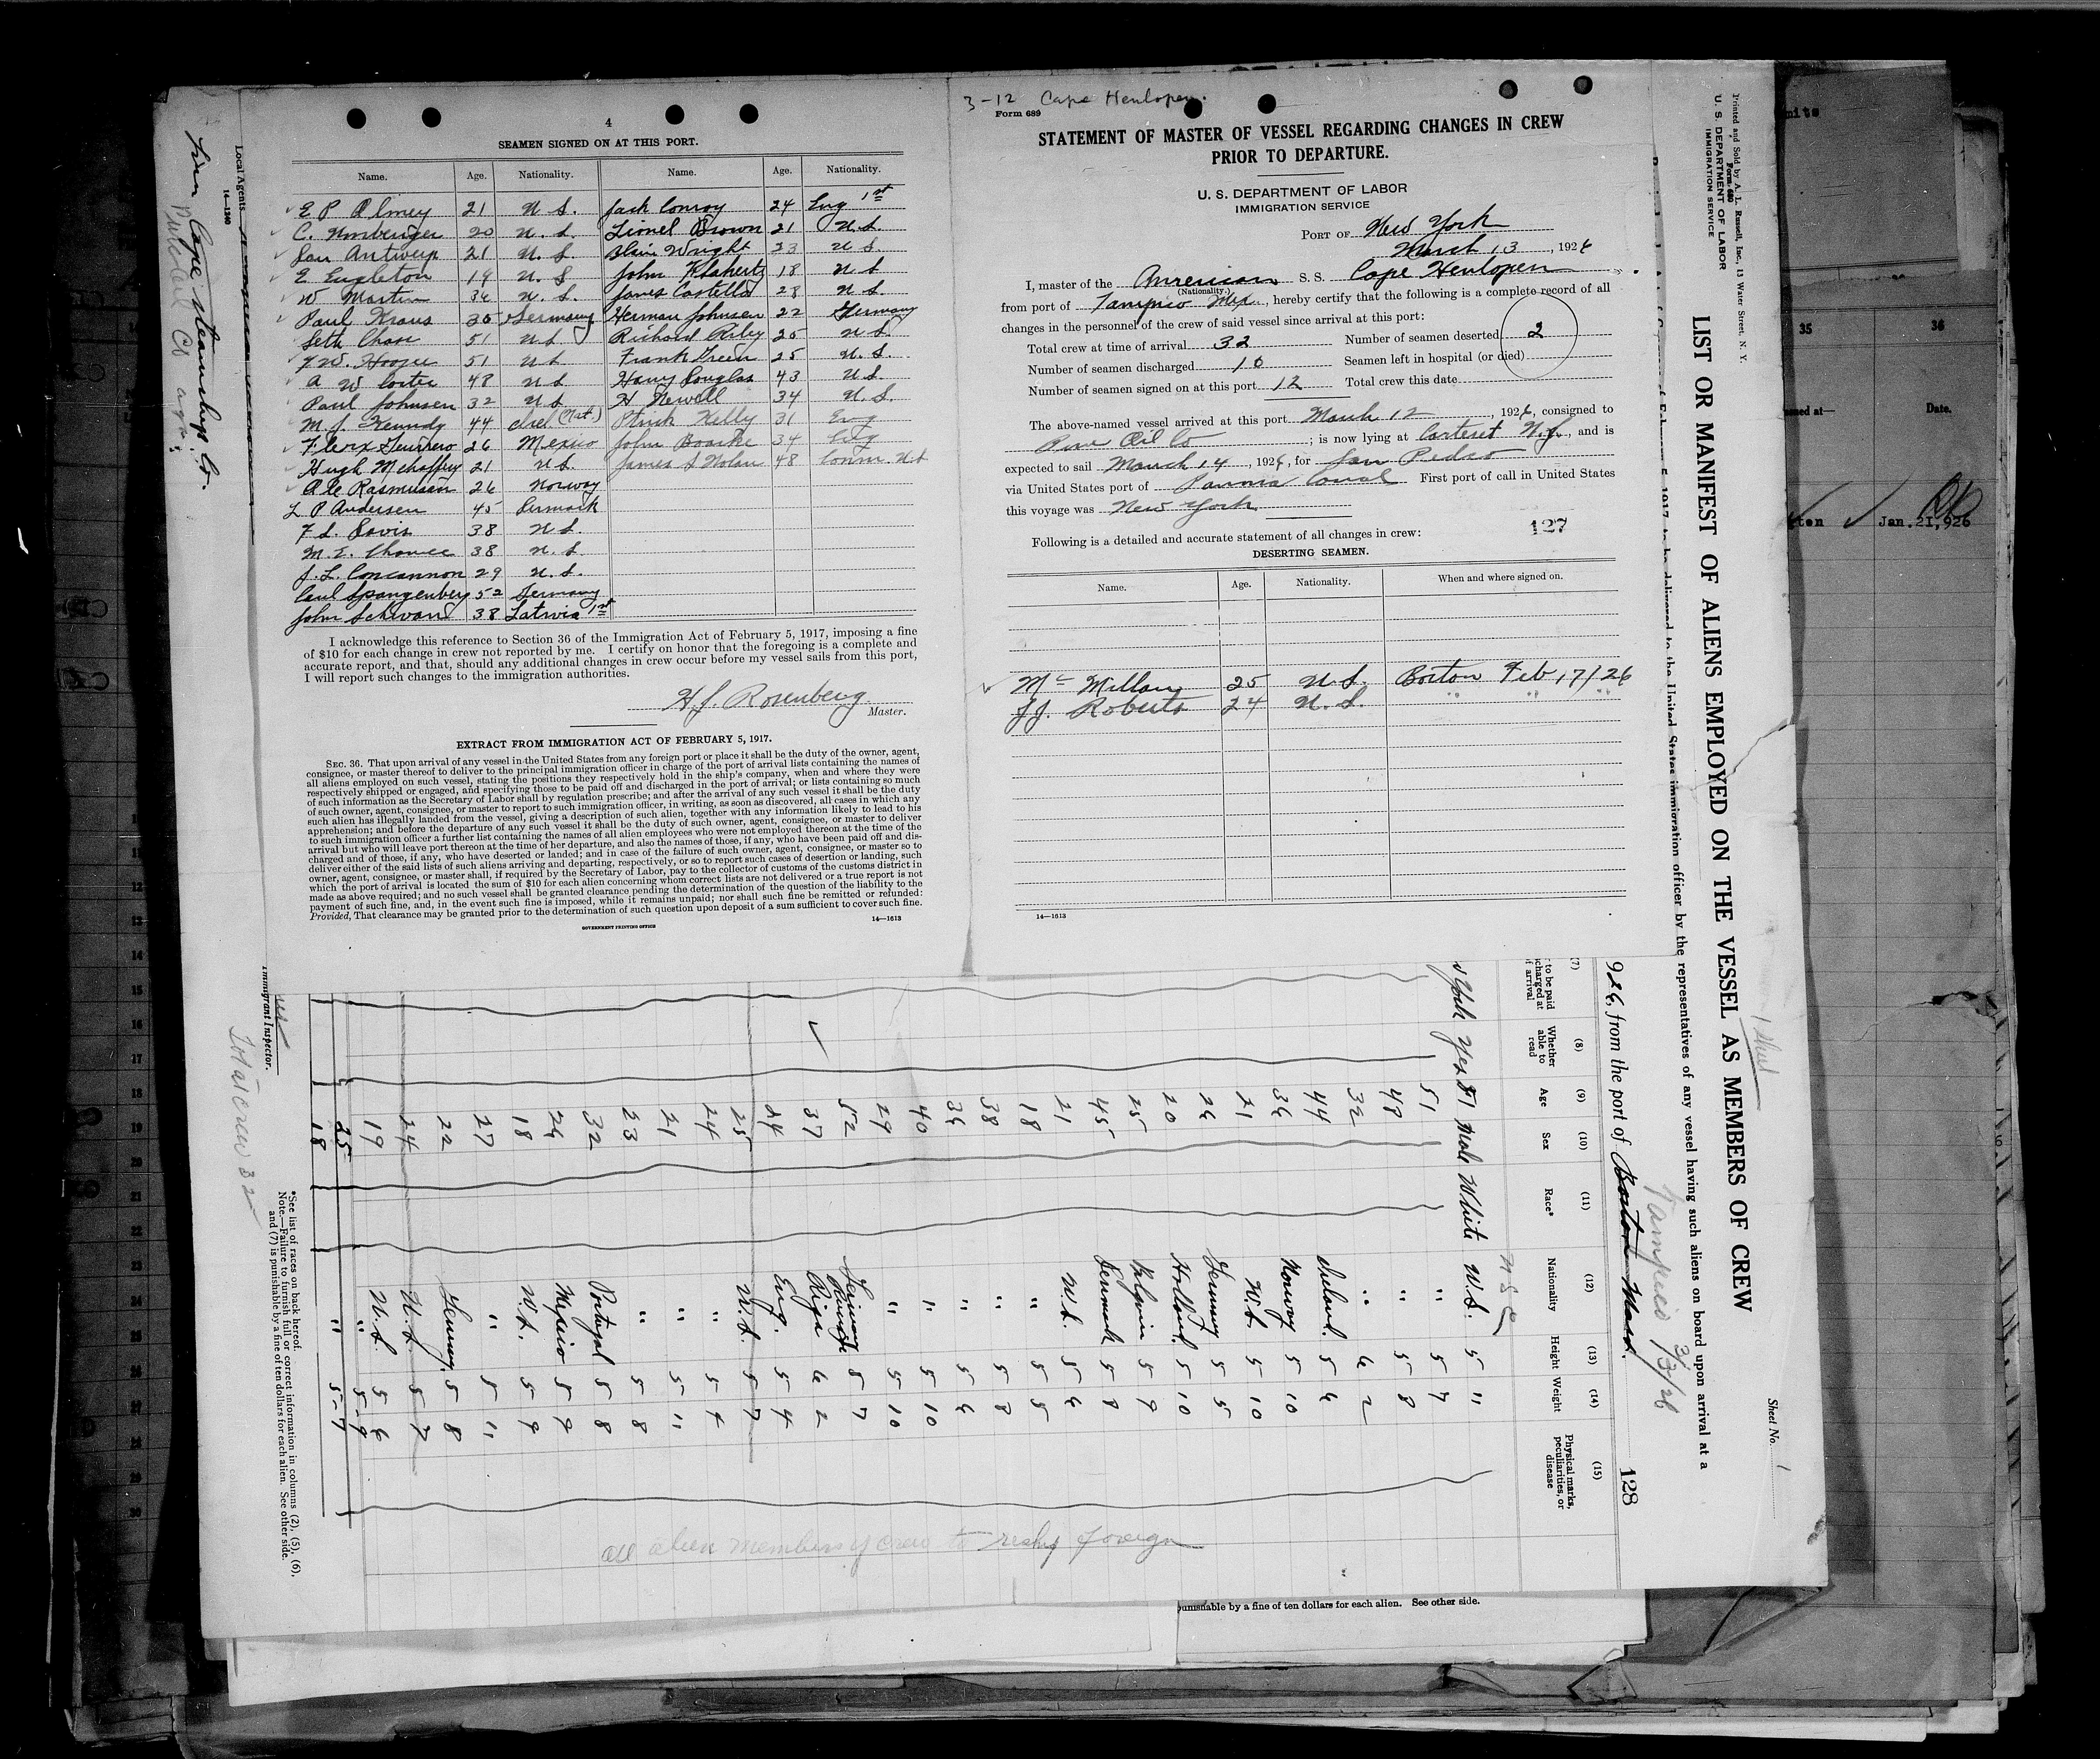 4
SEAMEN SIGNED ON AT THIS PORT.
Name. Age. Nationality. Name. Age. Nationality.
E P Almey 21 U S. Jack Conroy 24 Eng 1st
C. 20 U. S. Lionel Brown 21 U.S.
Jan Antwerp 21 U. S. Wright 23 U S
E Engleton 19 U. S John Klahertz 18 U S
W Martin 36 U. S. James Costello 28 U S.
Paul Kraus 35 Germany Herman Johnsen 22 Germany
Seth Chase 51 U S. Richard 25 U S
51 U S Frank Green 25 U. S.
A W Porter 48 U S Harry Douglas 43 U S.
Paul Johnsen 32 U S H Newell 34 U. S.
M. J. Kennedy 44 Irel (Nat.) Ptrick Kelly 31 Eng
Guerrero 26 Mexico John Boarke 34 Eng
Hugh Mchaffey 21 U S. James S Nolan 48 Conn. U.S
Ole Rasmussen 26 Norway
L P Andersen 45 Denmark
F S. Davis 38 U S.
M. E. Chance 38 U. S
J. L. Concannon 29 U. S.
Carl Spangenberg 52 Germany
John Schwan 38 Latvia 1st
I acknowledge this reference to Section 36 of the Immigration Act of February 5, 1917, imposing a fine
of $10 for each change in crew not reported by me. I certify on honor that the foregoing is a complete and
accurate report, and that, should any additional changes in crew occur before my vessel sails from this port,
I will report such changes to the immigration authorities.
H. J. Rosenberg
Master.
EXTRACT FROM IMMIGRATION ACT OF FEBRUARY 5, 1917.
SEC. 36. That upon arrival of any vessel in the United States from any foreign port or place it shall be the duty of the owner, agent,
consignee, or master thereof to deliver to the principal immigration officer in charge of the port of arrival lists containing the names of
all aliens employed on such vessel, stating the positions they respectively hold in the ship's company, when and where they were
respectively shipped or engaged, and specifying those to be paid off and discharged in the port of arrival; or lists containing so much
of such information as the Secretary of Labor shall by regulation prescribe; and after the arrival of any such vessel it shall be the duty
of such owner, agent, consignee, or master to report to such immigration officer, in writing, as soon as discovered, all cases in which any
such alien has illegally landed from the vessel, giving a description of such alien, together with any information likely to lead to his
apprehension; and before the departure of any such vessel it shall be the duty of such owner, agent, consignee, or master to deliver
to such immigration officer a further list containing the names of all alien employees who were not employed thereon at the time of the
arrival but who will leave port thereon at the time of her departure, and also the names of those, if any, who have been paid off and dis-
charged and of those, if any, who have deserted or landed; and in case of the failure of such owner, agent, consignee, or master so to
deliver either of the said lists of such aliens arriving and departing, respectively, or so to report such cases of desertion or landing, such
owner, agent, consignee, or master shall, if required by the Secretary of Labor, pay to the collector of customs of the customs district in
which the port of arrival is located the sum of $10 for each alien concerning whom correct lists are not delivered or a true report is not
made as above required; and no such vessel shall be granted clearance pending the determination of the question of the liability to the
payment of such fine, and, in the event such fine is imposed, while it remains unpaid; nor shall such fine be remitted or refunded:
Provided, That clearance may be granted prior to the determination of such question upon deposit of a sum sufficient to cover such fine.
14—1613
GOVERNMENT PRINTING OFFICE
3-12 Cape Henlopen.
Form 689
STATEMENT OF MASTER OF VESSEL REGARDING CHANGES IN CREW
PRIOR TO DEPARTURE.
U. S. DEPARTMENT OF LABOR
IMMIGRATION SERVICE
PORT OF New York
March 13, 1926
I, master of the American S. S. Cape Henlopen
(Nationality.)
from port of Tampico Mex., hereby certify that the following is a complete record of all
changes in the personnel of the crew of said vessel since arrival at this port:
Total crew at time of arrival 32 Number of seamen deserted 2
Number of seamen discharged 10 Seamen left in hospital (or died)
Number of seamen signed on at this port 12 Total crew this date
The above-named vessel arrived at this port March 12, 1926, consigned to
Pure Oil Co; is now lying at Carteret N.J., and is
expected to sail March 14, 1926, for San Pedro
via United States port of Panama Canal First port of call in United States
this voyage was New York
127
Following is a detailed and accurate statement of all changes in crew:
DESERTING SEAMEN.
Name. Age. Nationality. When and where signed on.
Mc Millan 25 U. S. Boston Feb 17/26
J J. Roberts 24 U. S. " " "
14—1613
Printed and Sold by A. L. Russell, Inc., 13 Water Street, N. Y.
Form 680
U. S. DEPARTMENT OF LABOR
IMMIGRATION SERVICE
LIST OR MANIFEST OF ALIENS EMPLOYED ON THE VESSEL AS MEMBERS OF CREW
Sheet No. 1
1917, to be delivered to the United States immigration officer by the representatives of any vessel having such aliens on board upon arrival at a
Tampico 3/3/26
926, from the port of Boston Mass. 128
(7) (8) (9) (10) (11) (12) (13) (14) (15)
to be paid
charged at
f arrival
Whether
able to
read
Age
Sex
Race*
Nationality
Height
Weight
Physical marks,
peculiarities, or
disease
York Yes 51 Male White U.S. 5 11
51 " 5 7
48 " 5 8
32 " 6 2
44 Ireland. 5 6
36 Norway 5 10
21 U.S. 5 10
26 Germany 5 5
20 Holland. 5 10
25 Belgium 5 9
45 Denmark 5 8
21 U.S. 5 6
18 " 5 5
38 " 5 8
36 " 5 6
40 " 5 10
29 " 5 10
52 5 7
37 Riga 6 2
24 Eng. 5 4
25 U.S. 5 7
24 " 5 4
21 " 5 11
23 " 5 8
32 Portugal 5 8
26 Mexico 5 9
18 U.S. 5 9
27 " 5 11
22 Germany. 5 8
24 U.S. 5 7
19 U.S. 5 6
25 " 5 9
18 " 5 7
all alien members of crew to reship foreign
*See list of races on back hereof.
Note.—Failure to furnish full or correct information in columns (2), (5), (6),
and (7) is punishable by a fine of ten dollars for each alien. See other side.
Immigrant Inspector.
Total crew 32
Local Agents
14—1240
Cape Steamship Co.
punishable by a fine of ten dollars for each alien. See other side.
35 36
Date.
Jan. 21, 926